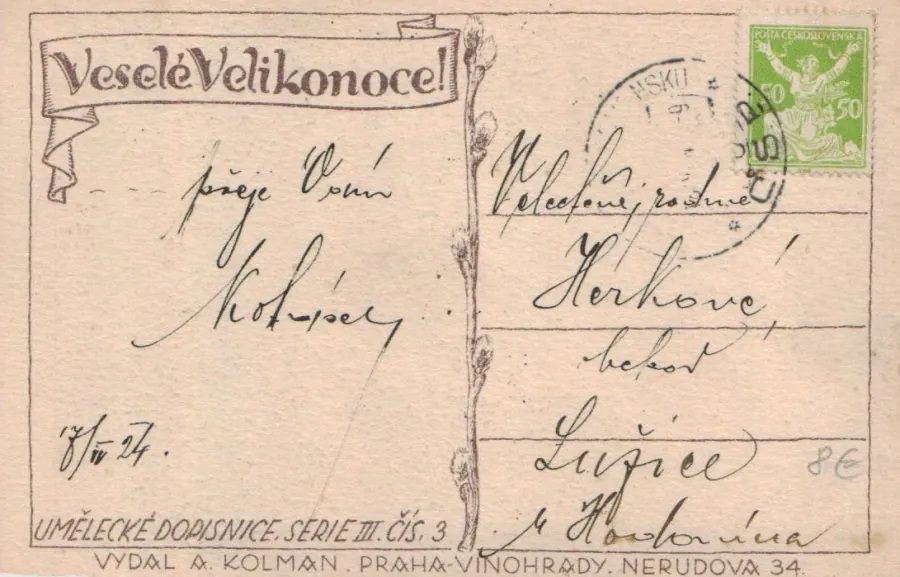 Veselé Velikonoce!
přeje Vám
17/IV 24.
UMĚLECKÉ DOPISNICE. SERIE III. ČÍS. 3
VYDAL A. KOLMAN. PRAHA-VINOHRADY. NERUDOVA 34.
POŠTA ČESKOSLOVENSKÁ
50 50
NSKU
ČSR
Velectěné rodině
Herkově
Lužice
u Hodonína
8€